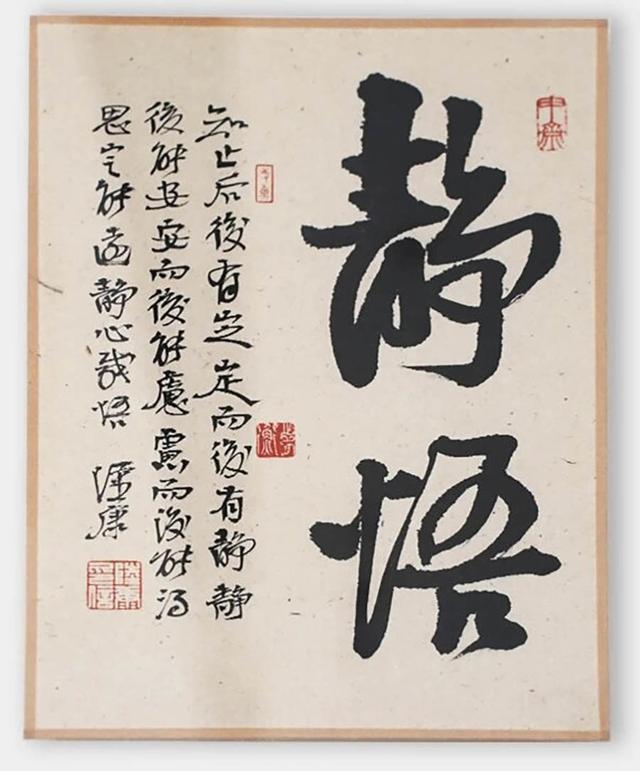 静悟
知止后後有定定而後有静静
後能安安而後能慮慮而後能得
思定能静心悟
康